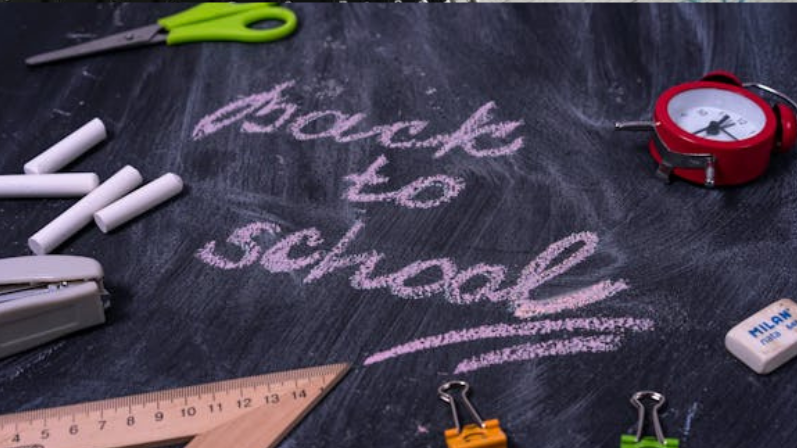 back
to
school
MILAN
nata
4 5 6 7 8 9 10 11 12 13 14